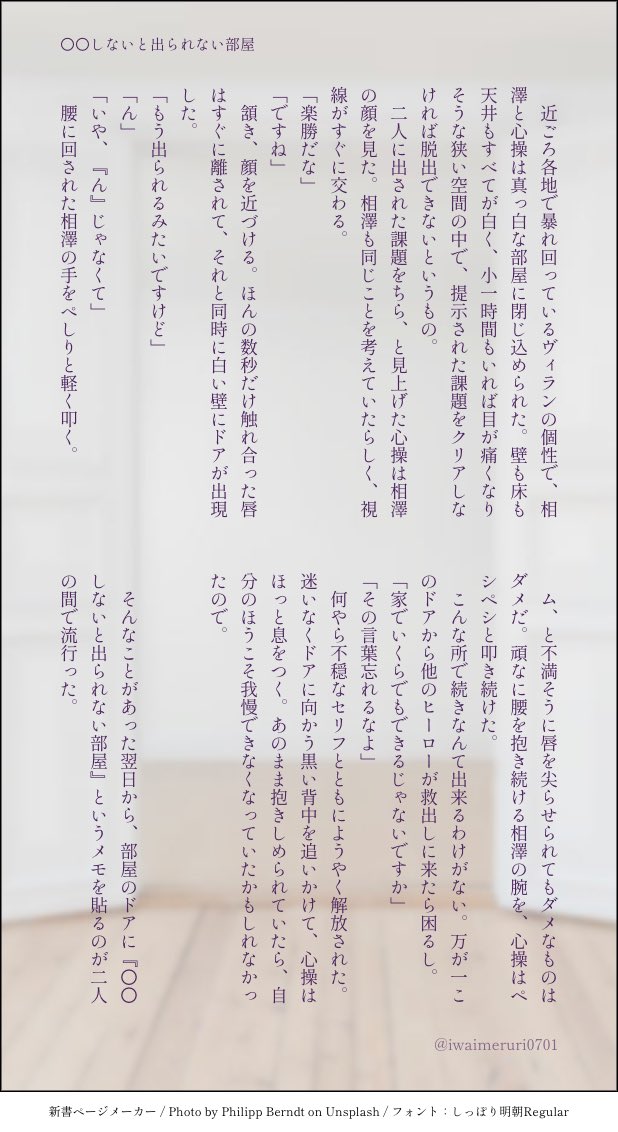 〇〇しないと出られない部屋
　近ごろ各地で暴れ回っているヴィランの個性で、相
澤と心操は真っ白な部屋に閉じ込められた。壁も床も
天井もすべてが白く、小一時間もいれば目が痛くなり
そうな狭い空間の中で、提示された課題をクリアしな
ければ脱出できないというもの。
　二人に出された課題をちら、と見上げた心操は相澤
の顔を見た。相澤も同じことを考えていたらしく、視
線がすぐに交わる。
「楽勝だな」
「ですね」
　頷き、顔を近づける。ほんの数秒だけ触れ合った唇
はすぐに離されて、それと同時に白い壁にドアが出現
した。
「もう出られるみたいですけど」
「ん」
「いや、『ん』じゃなくて」
　腰に回された相澤の手をぺしりと軽く叩く。
　ム、と不満そうに唇を尖らせられてもダメなものは
ダメだ。頑なに腰を抱き続ける相澤の腕を、心操はペ
シペシと叩き続けた。
　こんな所で続きなんて出来るわけがない。万が一こ
のドアから他のヒーローが救出しに来たら困るし。
「家でいくらでもできるじゃないですか」
「その言葉忘れるなよ」
　何やら不穏なセリフとともにようやく解放された。
迷いなくドアに向かう黒い背中を追いかけて、心操は
ほっと息をつく。あのまま抱きしめられていたら、自
分のほうこそ我慢できなくなっていたかもしれなかっ
たので。
　そんなことがあった翌日から、部屋のドアに『〇〇
しないと出られない部屋』というメモを貼るのが二人
の間で流行った。
@iwaimeruri0701
新書ページメーカー / Photo by Philipp Berndt on Unsplash / フォント：しっぽり明朝Regular